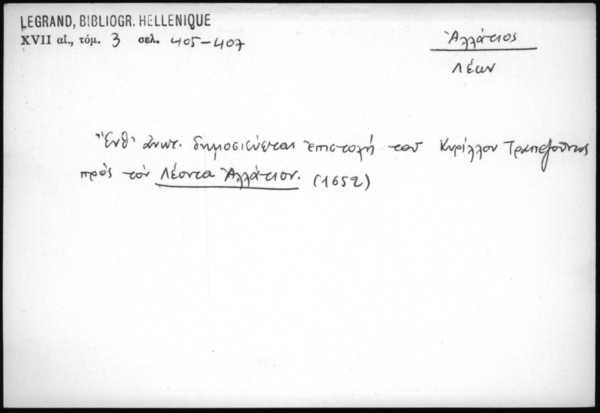 LEGRAND, BIBLIOGR. HELLENIQUE
XVII αἰ., τόμ. 3 σελ. 405-407
Ἀλλάτιος
Λέων
Ἔνθ' ἀνωτ. δημοσιεύεται ἐπιστολή του Κυρίλλου Τραπεζοῦντος
πρὸς τὸν Λέοντα Ἀλλάτιον. (1652)